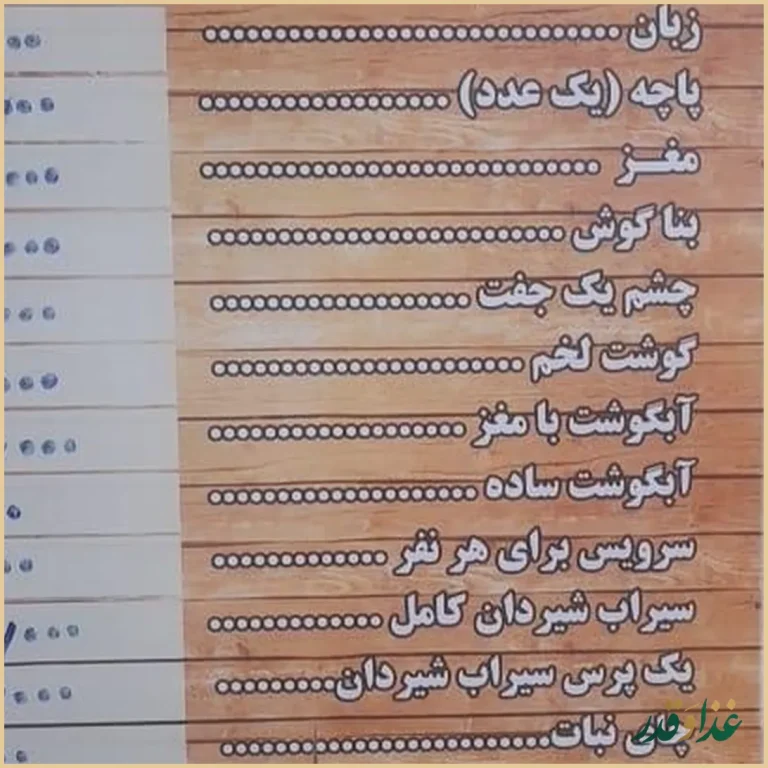 زبان
پاچه (یک عدد)
مغـز
بنا گوش
چشم یک جفت
گوشت لخم
آبگوشت با مغز
آبگوشت ساده
سرویس برای هر نفر
سیراب شیردان کامل
یک پرس سیراب شیردان
چای نبات
غذا و قدر